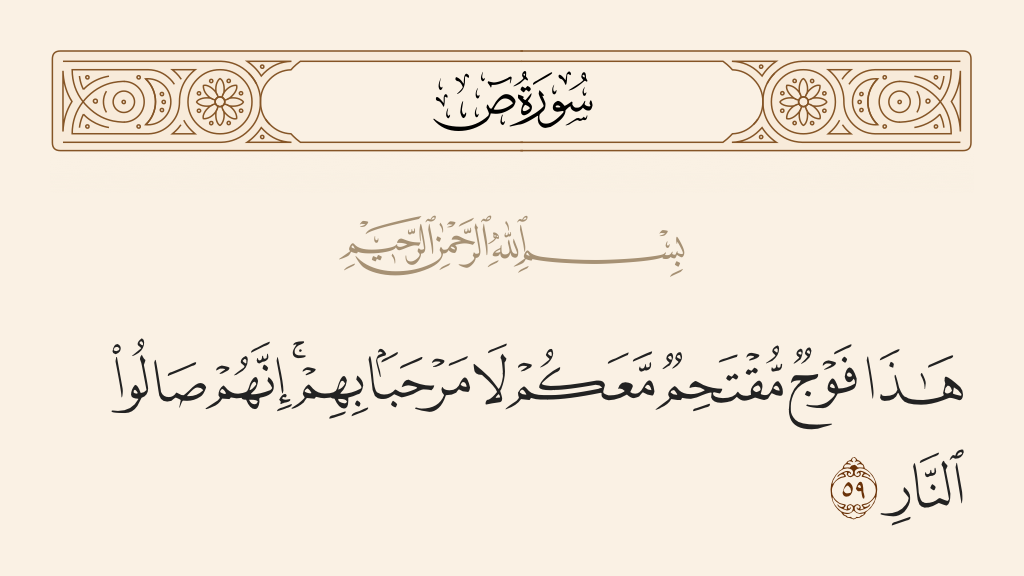 سُورَةُ صٓ
بِسْمِ ٱللَّهِ ٱلرَّحْمَٰنِ ٱلرَّحِيمِ
هَـٰذَا فَوْجٌ مُّقْتَحِمٌ مَّعَكُمْ لَا مَرْحَبًۢا بِهِمْ ۚ إِنَّهُمْ صَالُوا۟
ٱلنَّارِ ٥٩